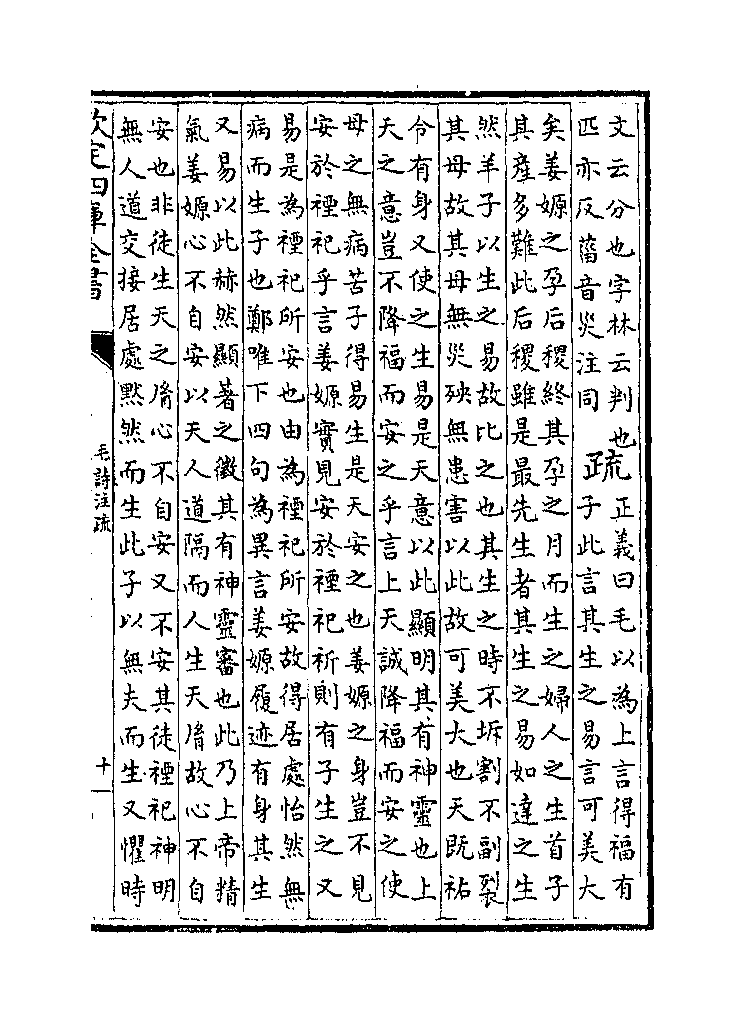 文云分也字林云判也
匹亦反菑音災注同
疏
正義曰毛以為上言得福有
子此言其生之易言可美大
矣姜嫄之孕后稷終其孕之月而生之婦人之生首子
其產多難此后稷雖是最先生者其生之易如達之生
然羊子以生之易故比之也其生之時不坼割不副裂
其母故其母無災殃無患害以此故可美大也天既祐
令有身又使之生易是天意以此顯明其有神靈也上
天之意豈不降福而安之乎言上天誠降福而安之使
母之無病苦子得易生是天安之也姜嫄之身豈不見
安於禋祀乎言姜嫄實見安於禋祀祈則有子生之又
易是為禋祀所安也由為禋祀所安故得居處怡然無
病而生子也鄭唯下四句為異言姜嫄履迹有身其生
又易以此赫然顯著之徵其有神靈審也此乃上帝精
氣姜嫄心不自安以天人道隔而人生天胤故心不自
安也非徒生天之胤心不自安又不安其徒禋祀神明
無人道交接居處默然而生此子以無夫而生又懼時
欽定四庫全書
毛詩注疏
十一